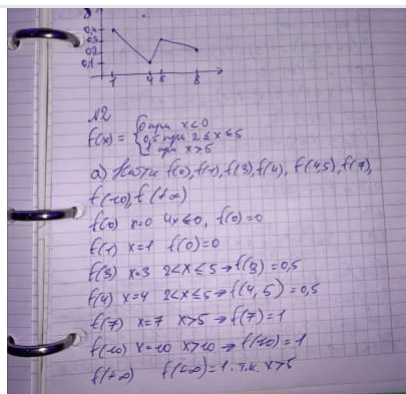 0,4
0,3
0,2
0,1
1 4 5 8
№2
f(x) = { 0 при x<0
0,5 при 2≤x≤5
1 при x>5
а) Найти f(0), f(1), f(3), f(4), f(4,5), f(7),
f(-10), f(+∞)
f(0) x=0 x≤0, f(0)=0
f(1) x=1 f(0)=0
f(3) x=3 2<x≤5→f(3)=0,5
f(4) x=4 2<x≤5→f(4,5)=0,5
f(7) x=7 x>5→f(7)=1
f(-10) x=-10 x>10→f(-10)=1
f(+∞) f(+∞)=1. т.к. x>5